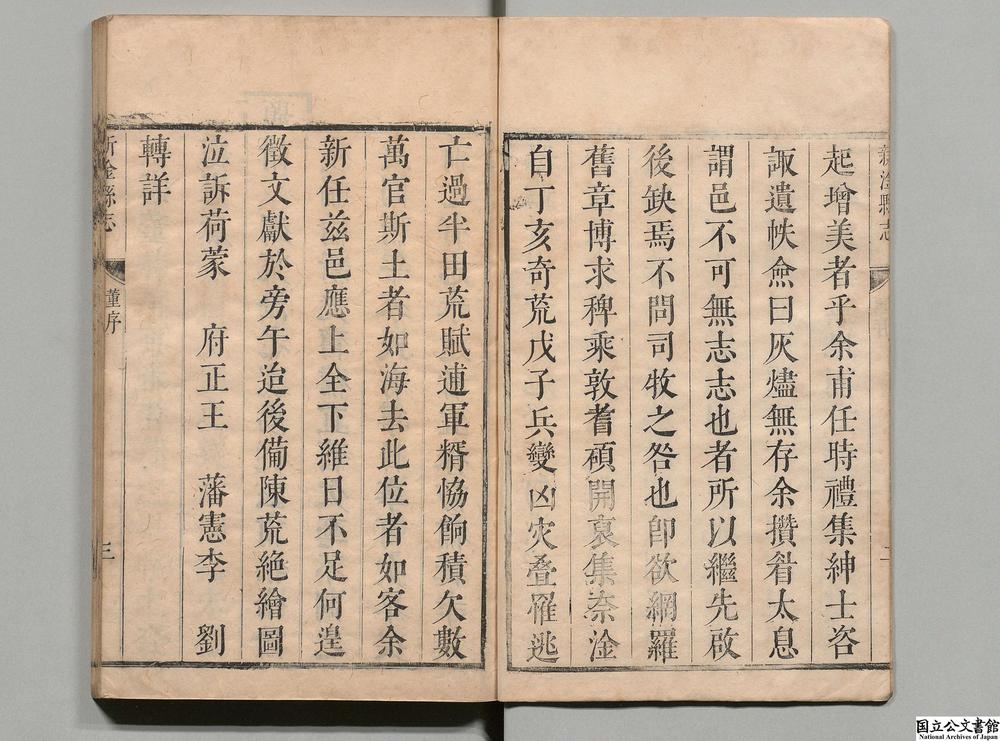 新淦縣志
二
起增美者乎余甫任時禮集紳士咨
諏遺帙僉曰灰燼無存余攢眉太息
謂邑不可無志志也者所以繼先啟
後缺焉不問司牧之咎也卽欲網羅
舊章博求稗乘敦耆碩開裒集奈淦
自丁亥奇荒戊子兵變凶災疊罹逃
亡過半田荒賦逋軍糈協餉積欠數
萬官斯土者如海去此位者如客余
新任兹邑應上全下維日不足何遑
徵文獻於旁午迨後備陳荒絶繪圖
泣訴荷蒙 府正王 藩憲李 劉
轉詳
新淦縣志 董序 三
国立公文書館
National Archives of Japan